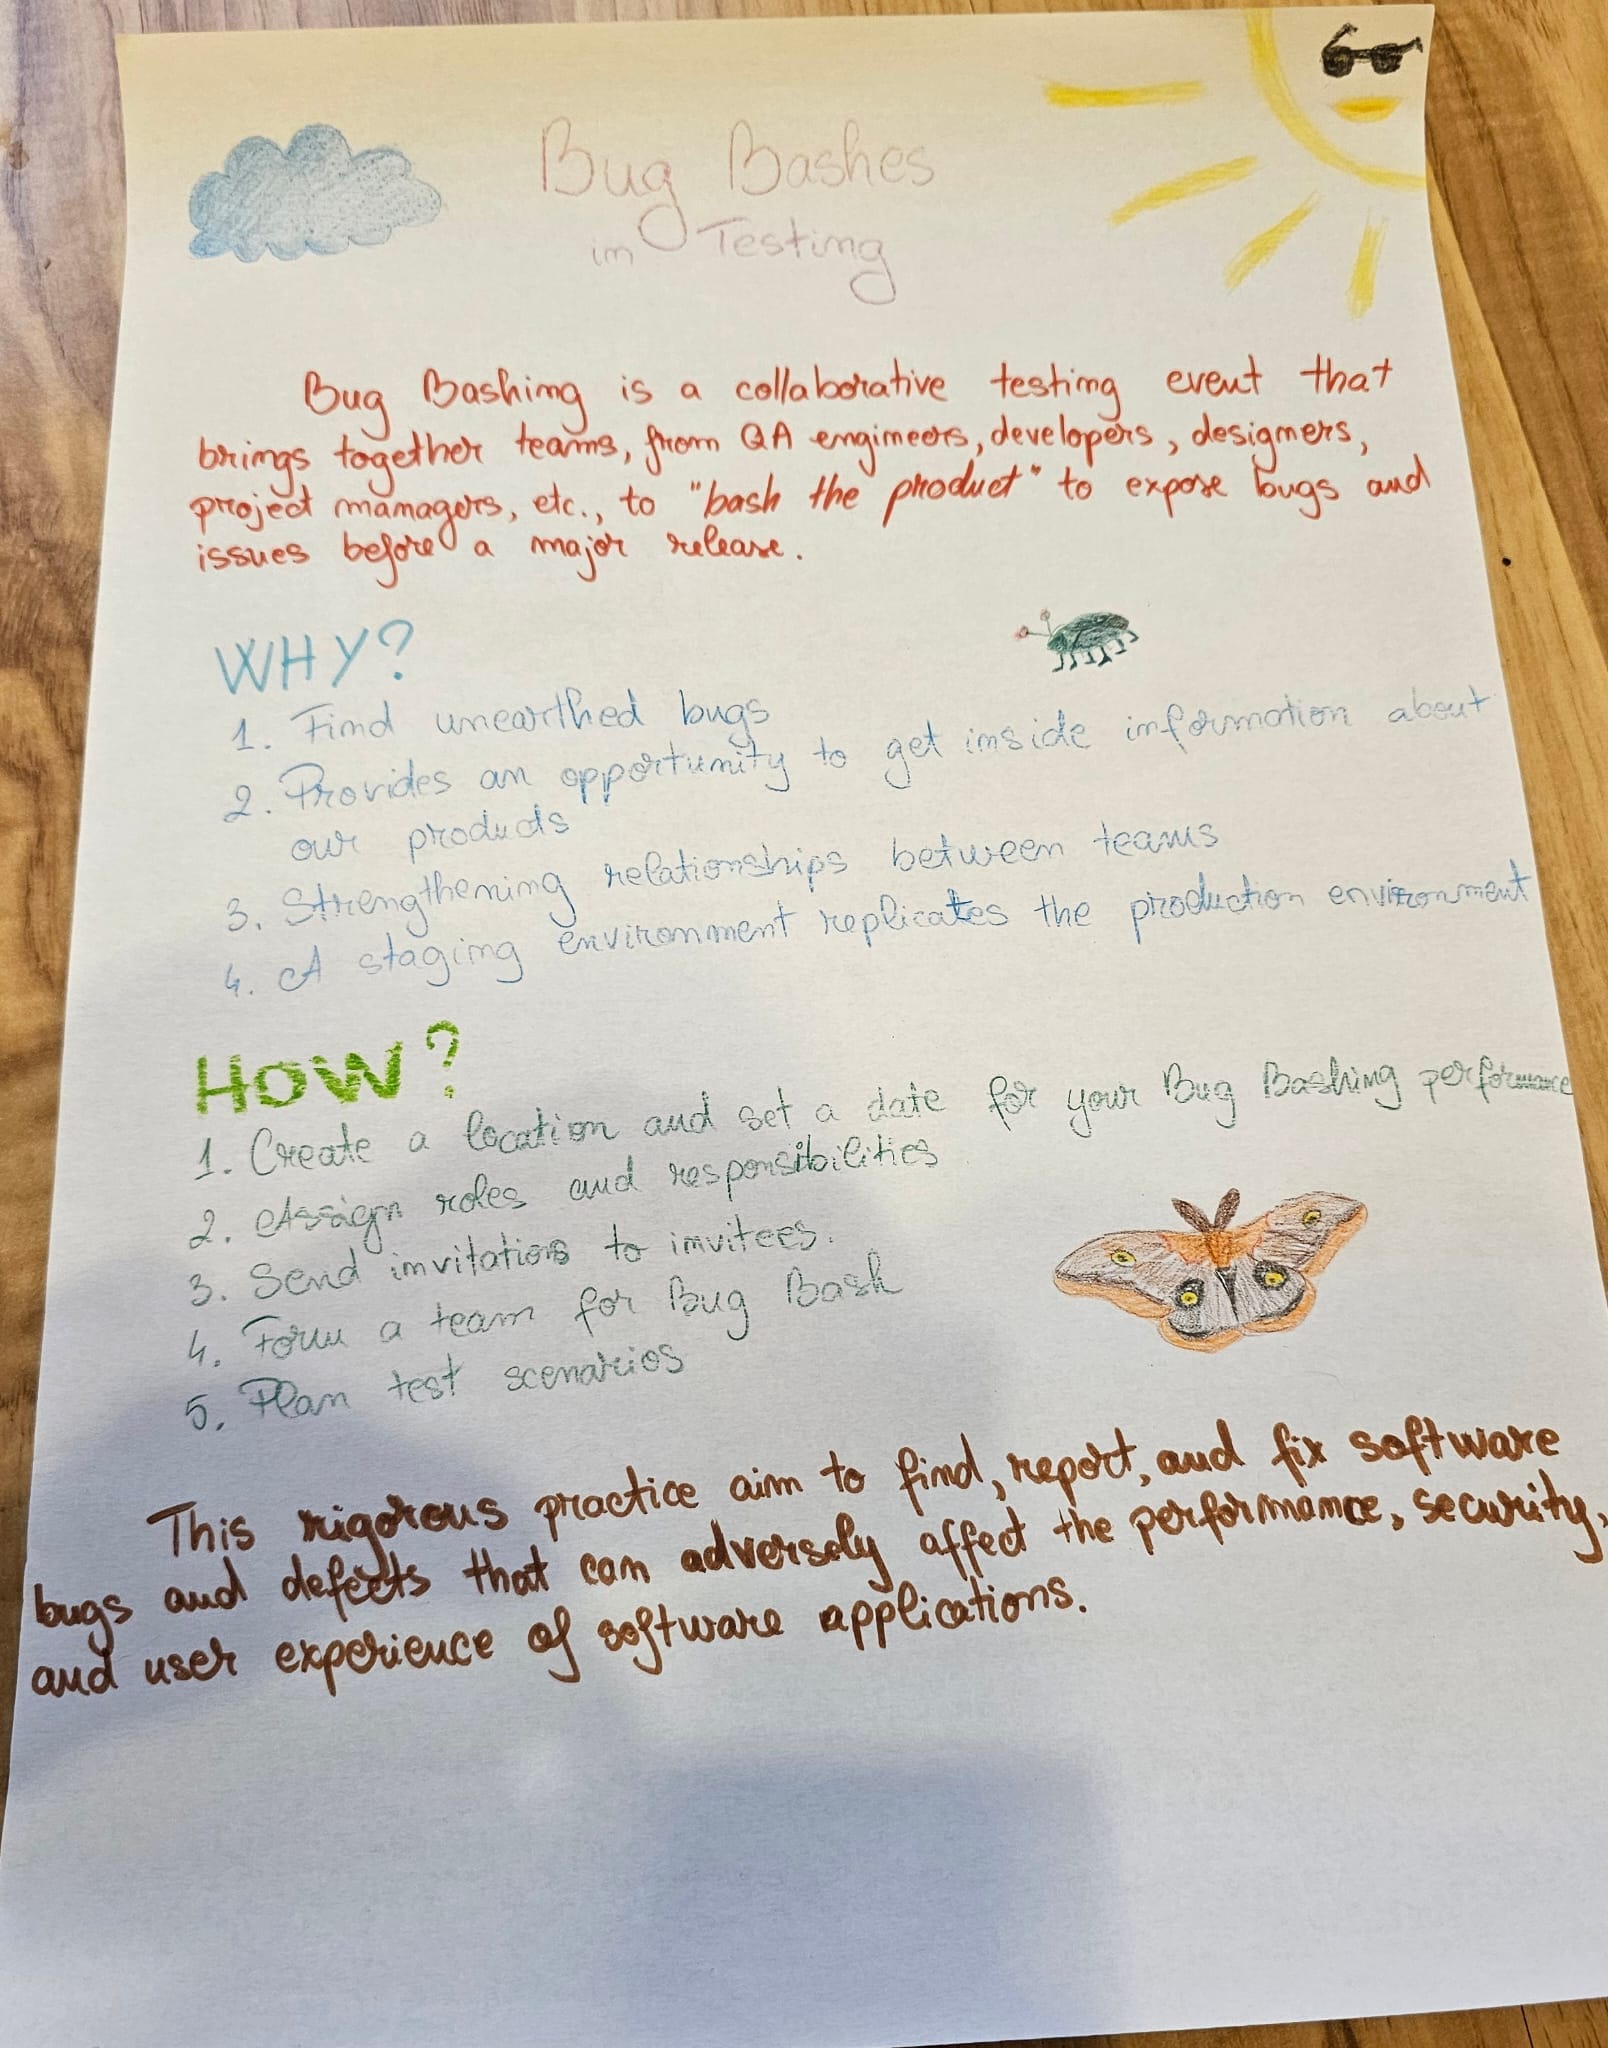 Bug Bashes
in Testing
Bug Bashing is a collaborative testing event that
brings together teams, from QA engineers, developers, designers,
project managers, etc., to "bash the product" to expose bugs and
issues before a major release.
WHY?
1. Find unearthed bugs
2. Provides an opportunity to get inside information about
our products
3. Strengthening relationships between teams
4. A staging environment replicates the production environment
HOW?
1. Create a location and set a date for your Bug Bashing performance
2. Assign roles and responsibilities
3. Send invitations to invitees.
4. Form a team for Bug Bash
5. Plan test scenarios
This rigorous practice aim to find, report, and fix software
bugs and defects that can adversely affect the performance, security,
and user experience of software applications.